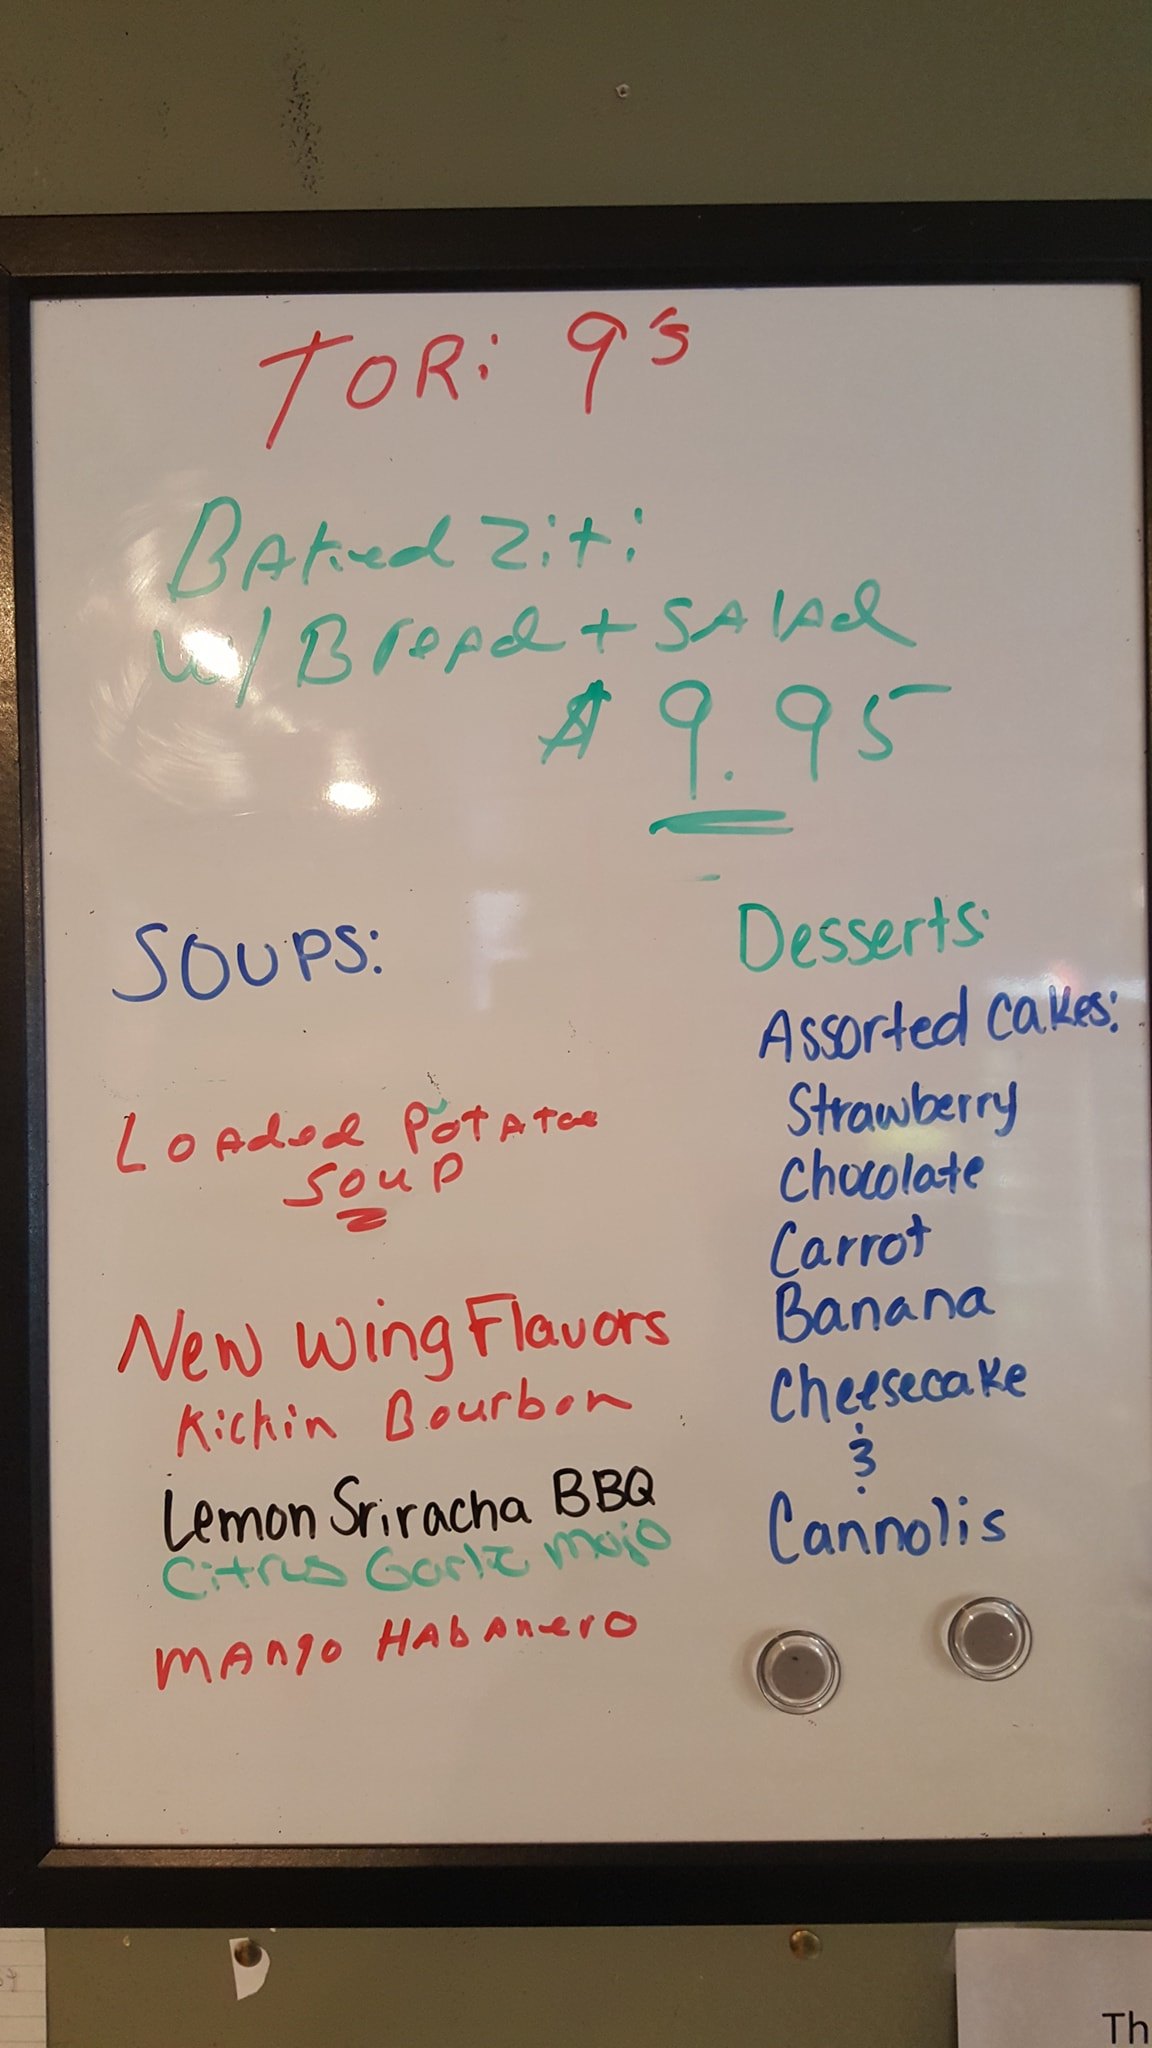 TORi 9's
BAked Ziti
w/ Bread + SALAd
$ 9.95
SOUPS:
LoAded PotAtoe
SOUP
New Wing Flavors
Kickin Bourbon
Lemon Sriracha BBQ
Citrus Garlic Mojo
MAngo HAbAnero
Desserts:
Assorted Cakes:
Strawberry
Chocolate
Carrot
Banana
Cheesecake
&
Cannolis
Th